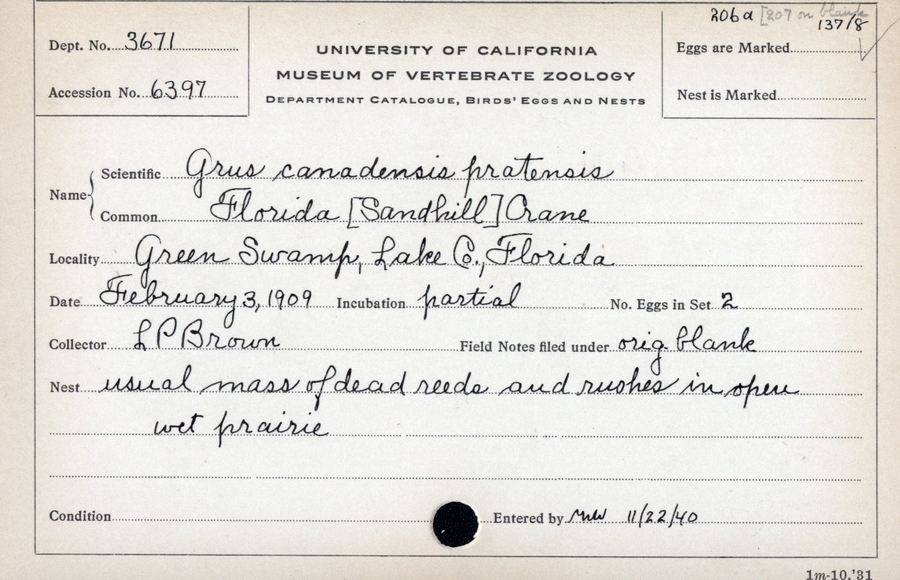 206a [207 on blank
137/8
Dept. No. 3671
UNIVERSITY OF CALIFORNIA
Eggs are Marked
MUSEUM OF VERTEBRATE ZOOLOGY
Accession No. 6397
DEPARTMENT CATALOGUE, BIRDS' EGGS AND NESTS
Nest is Marked
Name
Scientific Grus canadensis pratensis
Common Florida [Sandhill] Crane
Locality Green Swamp, Lake Co., Florida
Date February 3, 1909 Incubation partial No. Eggs in Set 2
Collector L P Brown Field Notes filed under orig blank
Nest usual mass of dead reeds and rushes in open
wet prairie
Condition Entered by 11/22/40
1m-10,'31